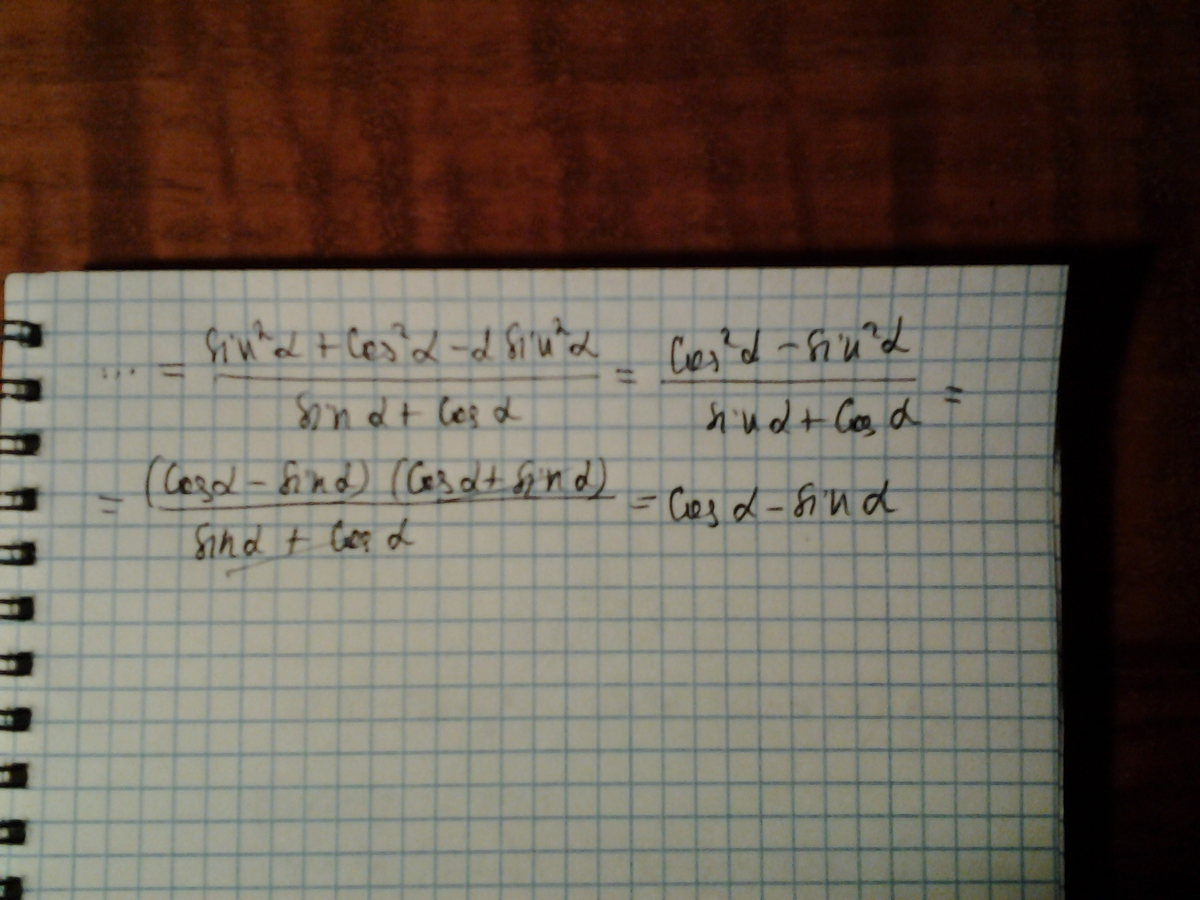 ... = (sin²α + cos²α - 2 sin²α)/(sin α + cos α) = (cos²α - sin²α)/(sin α + cos α) =
= ((cos α - sin α) (cos α + sin α))/(sin α + cos α) = cos α - sin α